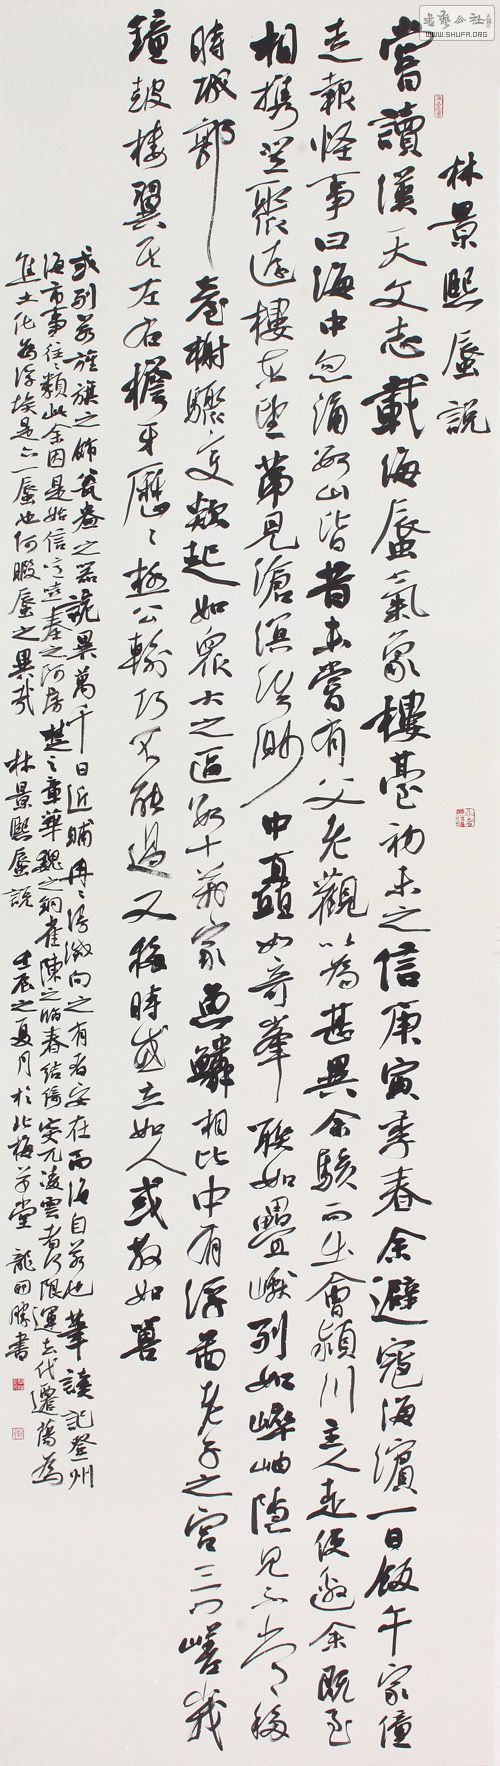 林景熙蜃說
嘗讀漢天文志載海蜃氣象樓臺初未之信庚寅季春余避寇海濱一日飯午家僮
走報怪事曰海中忽涌數山皆昔未嘗有父老觀以為甚異余駭而出會潁川主人走使邀余既至
相攜登聚遠樓東望第見滄溟浩渺中矗如奇峯聯如疊巘列如崪岫隱見不常移
時城郭臺榭驟變欻起如眾大之區數十萬家魚鱗相比中有浮圖老子之宮三門嵯峨
鐘鼓樓翼其左右檐牙歷歷極公輸巧不能過又移時或立如人或散如獸
或列若旌旗之飾瓮盎之器詭異萬千日近晡冉冉漫滅向之有者安在而海自若也筆談記登州
海市事往往類此余因是始信噫嘻秦之阿房楚之章華魏之銅雀陳之臨春結綺突兀凌雲者何限運去代遷蕩為
焦土化為浮埃是亦一蜃也何暇蜃之異哉 林景熙蜃說 壬辰之夏月於北梅草堂 龍國勝書
WWW.SHUFA.ORG